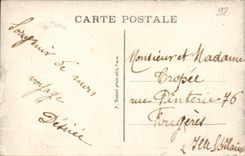 CARTE POSTALE
92
Souvenir de mon
voyage
Désirée
Monsieur et Madame
Tropée
rue Pinterie 76
Fougères
Ille &